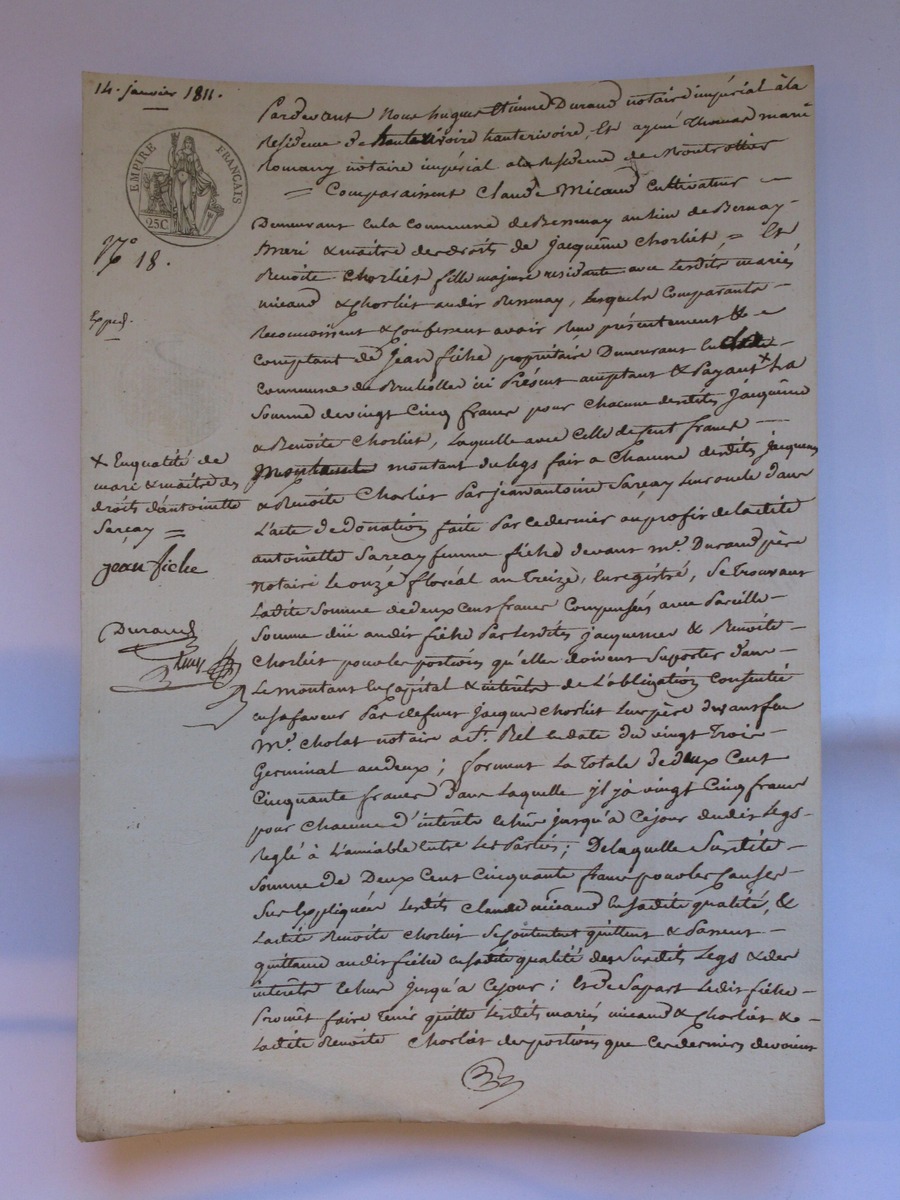 14. janvier 1811.
EMPIRE FRANÇAIS
25C
N° 18.
Expéd.
Pardevant Nous hugues Etienne Durand notaire impérial à la
Residence de hauterivoire, Et aymé Thomas marie
Romany notaire impérial a la Residence de Montrottier
= Comparaissent Claude Micaud Cultivateur —
Demeurant En la Commune de Bessenay au lieu de Bernay-
mari & maitre des droits de Jacqueme Chorliet, = Et
Benoite Chorliet fille majeure residante avec lesdits mariés
micaud & Chorliet audit Bessenay, lesquels Comparants -
Reconnaissent & Confessent avoir Reçu présentement &
comptant de Jean fiche propriétaire Demeurant En la
commune de Brullolles ici Présent acceptant & Payant x La
Somme de vingt Cinq francs pour Chacune desdites Jacqueme
& Benoite Chorliet, Laquelle avec Celle de Cent francs —
montant du legs fait a Chacune desdites Jacqueme
& Benoite Chorliet Par jean antoine Sarçay Leur oncle dans
L'acte de Donation faite Par ce dernier au profit de Ladite
antoinette Sarcay femme fiche devant m.e Durand père
notaire le onze floréal an Treize, Enregistré, Se Trouvant
Ladite Somme de deux Cent francs Compensés avec Pareille -
Somme düe audit fiche Par lesdites jacqueme & Benoite -
Chorliet pour les portions qu'elles doivent Suporter dans -
Le montant En Capital & intérêts de L'obligation Consentie
En sa faveur Par defunt Jacques Chorliet Leur père devant feu
M.e Cholat notaire a S.t Bel En date du vingt Trois -
Germinal an deux ; forment La Totale de deux Cent
Cinquante francs Dans Laquelle jl jà vingt Cinq francs
pour Chacune d'intérêts Echus jusqu'à Cejour dudit Legs -
Reglé à L'amiable Entre Les Parties ; De laquelle Susdite -
Somme de Deux Cent Cinquante francs pour les Causes -
Sus Expliquées Lesdits Claude micaud En sadite qualité, &
Ladite Benoite Chorliet Se Contentent quittent & Passent -
quittance audit fiche En sadite qualité des Susdits Legs & des
intérêts Echus jusqu'à Cejour ; Et de Sa part Ledit fiche -
Promêt faire Tenir quitte Lesdits mariés micaud & Chorliet & -
Ladite Benoite Chorliet des portions que Ces derniers devoient
x En qualité de
mari & maitre des
droits d'antoinette
Sarçay =
jean fiche
Durand